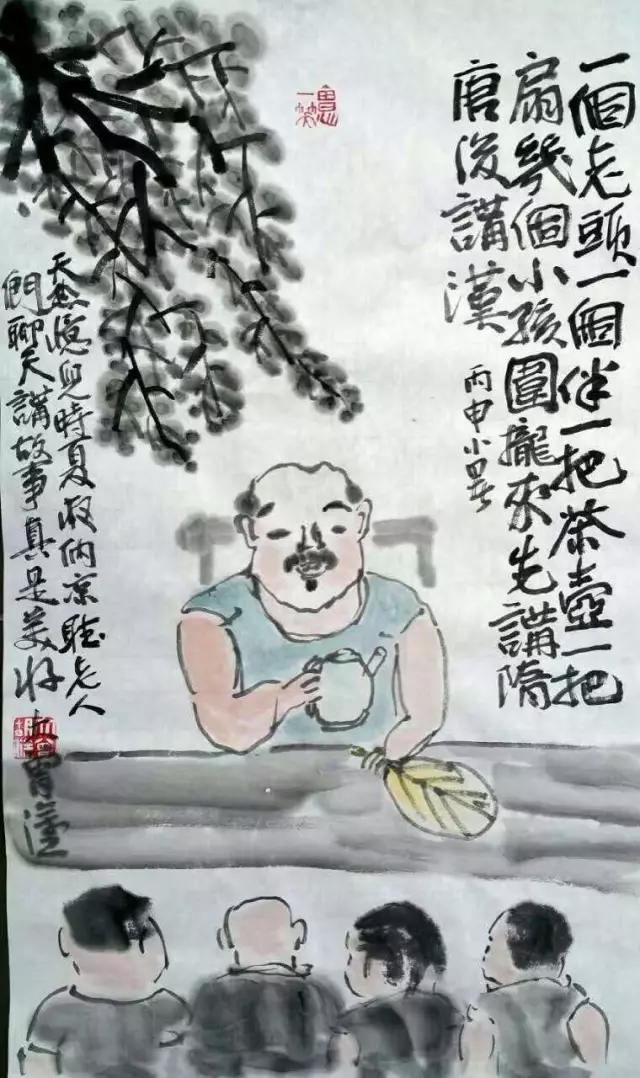 一個老頭一個伴一把茶壺一把
扇幾個小孩圍攏來先講隋
唐後講漢
丙申小暑
天熱憶兒時夏夜納凉聽老人
們聊天講故事真是美好